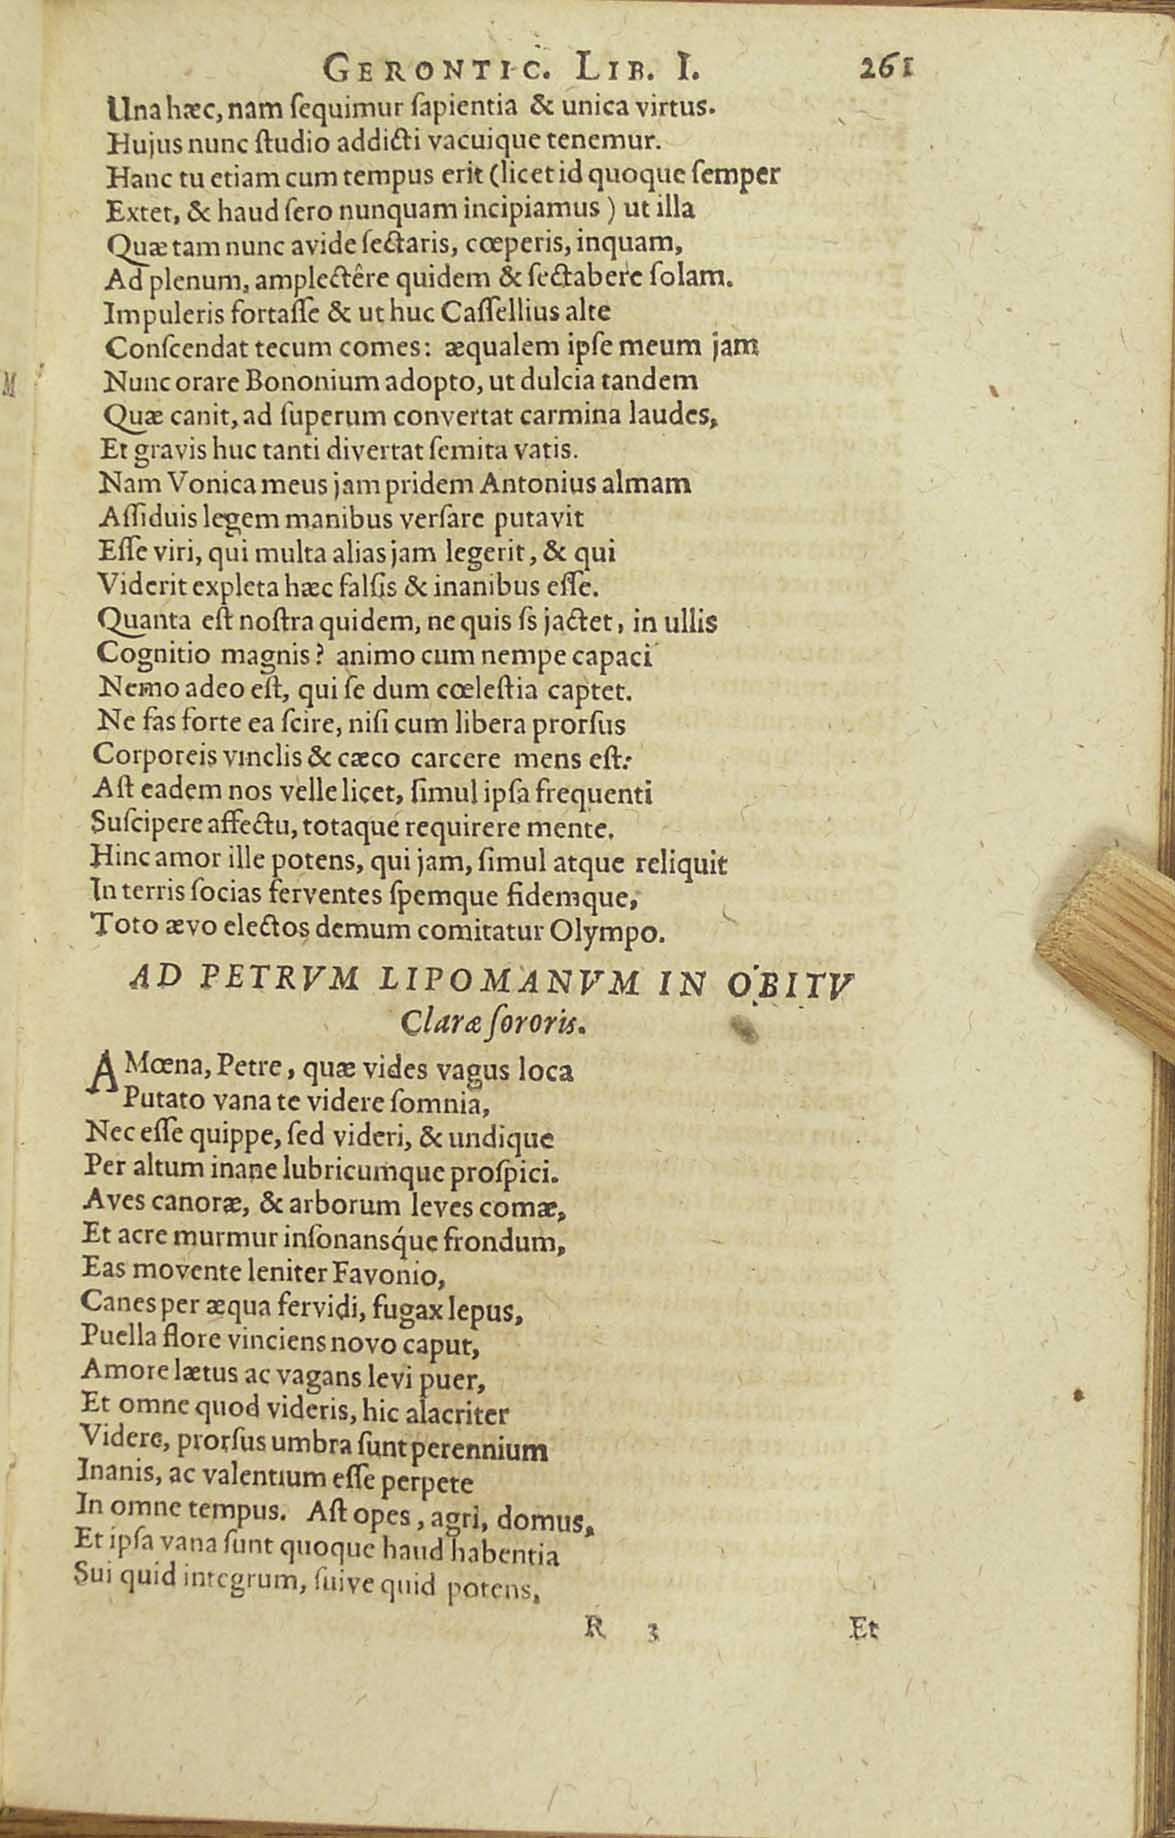 GERONTIC. LIB. I. 261
Una hæc, nam ſequimur ſapientia & unica virtus.
Hujus nunc ſtudio addicti vacuique tenemur.
Hanc tu etiam cum tempus erit (licet id quoque ſemper
Extet, & haud ſero nunquam incipiamus) ut illa
Quæ tam nunc avide ſectaris, cœperis, inquam,
Ad plenum, amplectêre quidem & ſectabere ſolam.
Impuleris fortaſſe & ut huc Caſſellius alte
Conſcendat tecum comes: æqualem ipſe meum jam
Nunc orare Bononium adopto, ut dulcia tandem
Quæ canit, ad ſuperum convertat carmina laudes,
Et gravis huc tanti divertat ſemita vatis.
Nam Vonica meus jam pridem Antonius almam
Aſſiduis legem manibus verſare putavit
Eſſe viri, qui multa alias jam legerit, & qui
Viderit expleta hæc falſis & inanibus eſſe.
Quanta eſt noſtra quidem, ne quis ſs jactet, in ullis
Cognitio magnis? animo cum nempe capaci
Nemo adeo eſt, qui ſe dum cœleſtia captet.
Ne fas forte ea ſcire, niſi cum libera prorſus
Corporeis vinclis & cæco carcere mens eſt:
Aſt eadem nos velle licet, ſimul ipſa frequenti
Suſcipere affectu, totaque requirere mente.
Hinc amor ille potens, qui jam, ſimul atque reliquit
In terris ſocias ferventes ſpemque fidemque,
Toto ævo electos demum comitatur Olympo.
AD PETRVM LIPOMANVM IN OBITV
Claræ ſororis.
AMœna, Petre, quæ vides vagus loca
Putato vana te videre ſomnia,
Nec eſſe quippe, ſed videri, & undique
Per altum inane lubricumque proſpici.
Aves canoræ, & arborum leves comæ,
Et acre murmur inſonansq́ue frondum,
Eas movente leniter Favonio,
Canes per æqua fervidi, fugax lepus,
Puella flore vinciens novo caput,
Amore lætus ac vagans levi puer,
Et omne quod videris, hic alacriter
Videre, prorſus umbra ſunt perennium
Inanis, ac valentium eſſe perpete
In omne tempus. Aſt opes, agri, domus,
Et ipſa vana ſunt quoque haud habentia
Sui quid integrum, ſuive quid potens,
R 3 Et